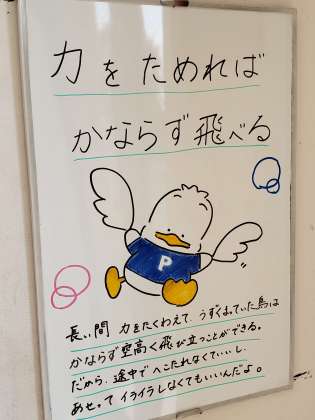 力をためれば
かならず飛べる
P
長い間 力をたくわえて、うずくまっていた鳥は
かならず空高く飛び立つことができる。
だから、途中でへこたれなくていいし、
あせってイライラしなくてもいいんだよ。